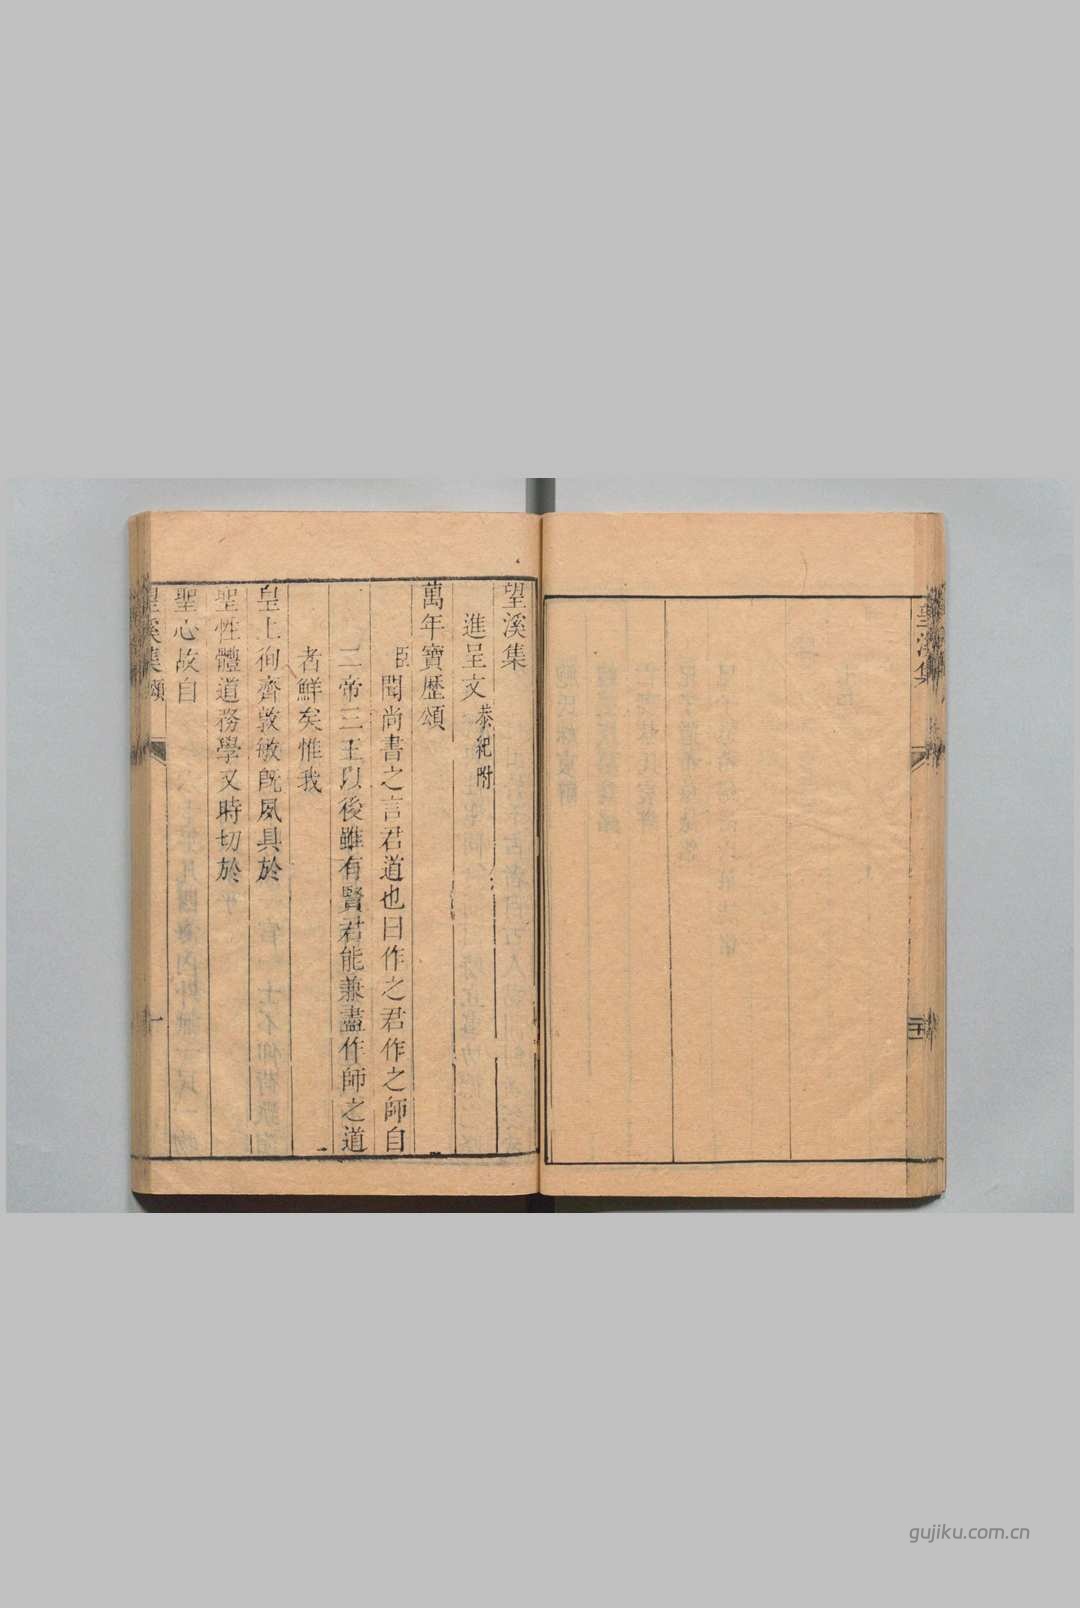 望溪集
望溪集
進呈文 恭紀附
萬年寶歷頌
臣聞尚書之言君道也曰作之君作之師自
二帝三王以後雖有賢君能兼盡作師之道
者鮮矣惟我
皇上徇齊敦敏既夙具於
聖性體道務學又時切於
聖心故自
望溪集 頌
一
gujiku.com.cn